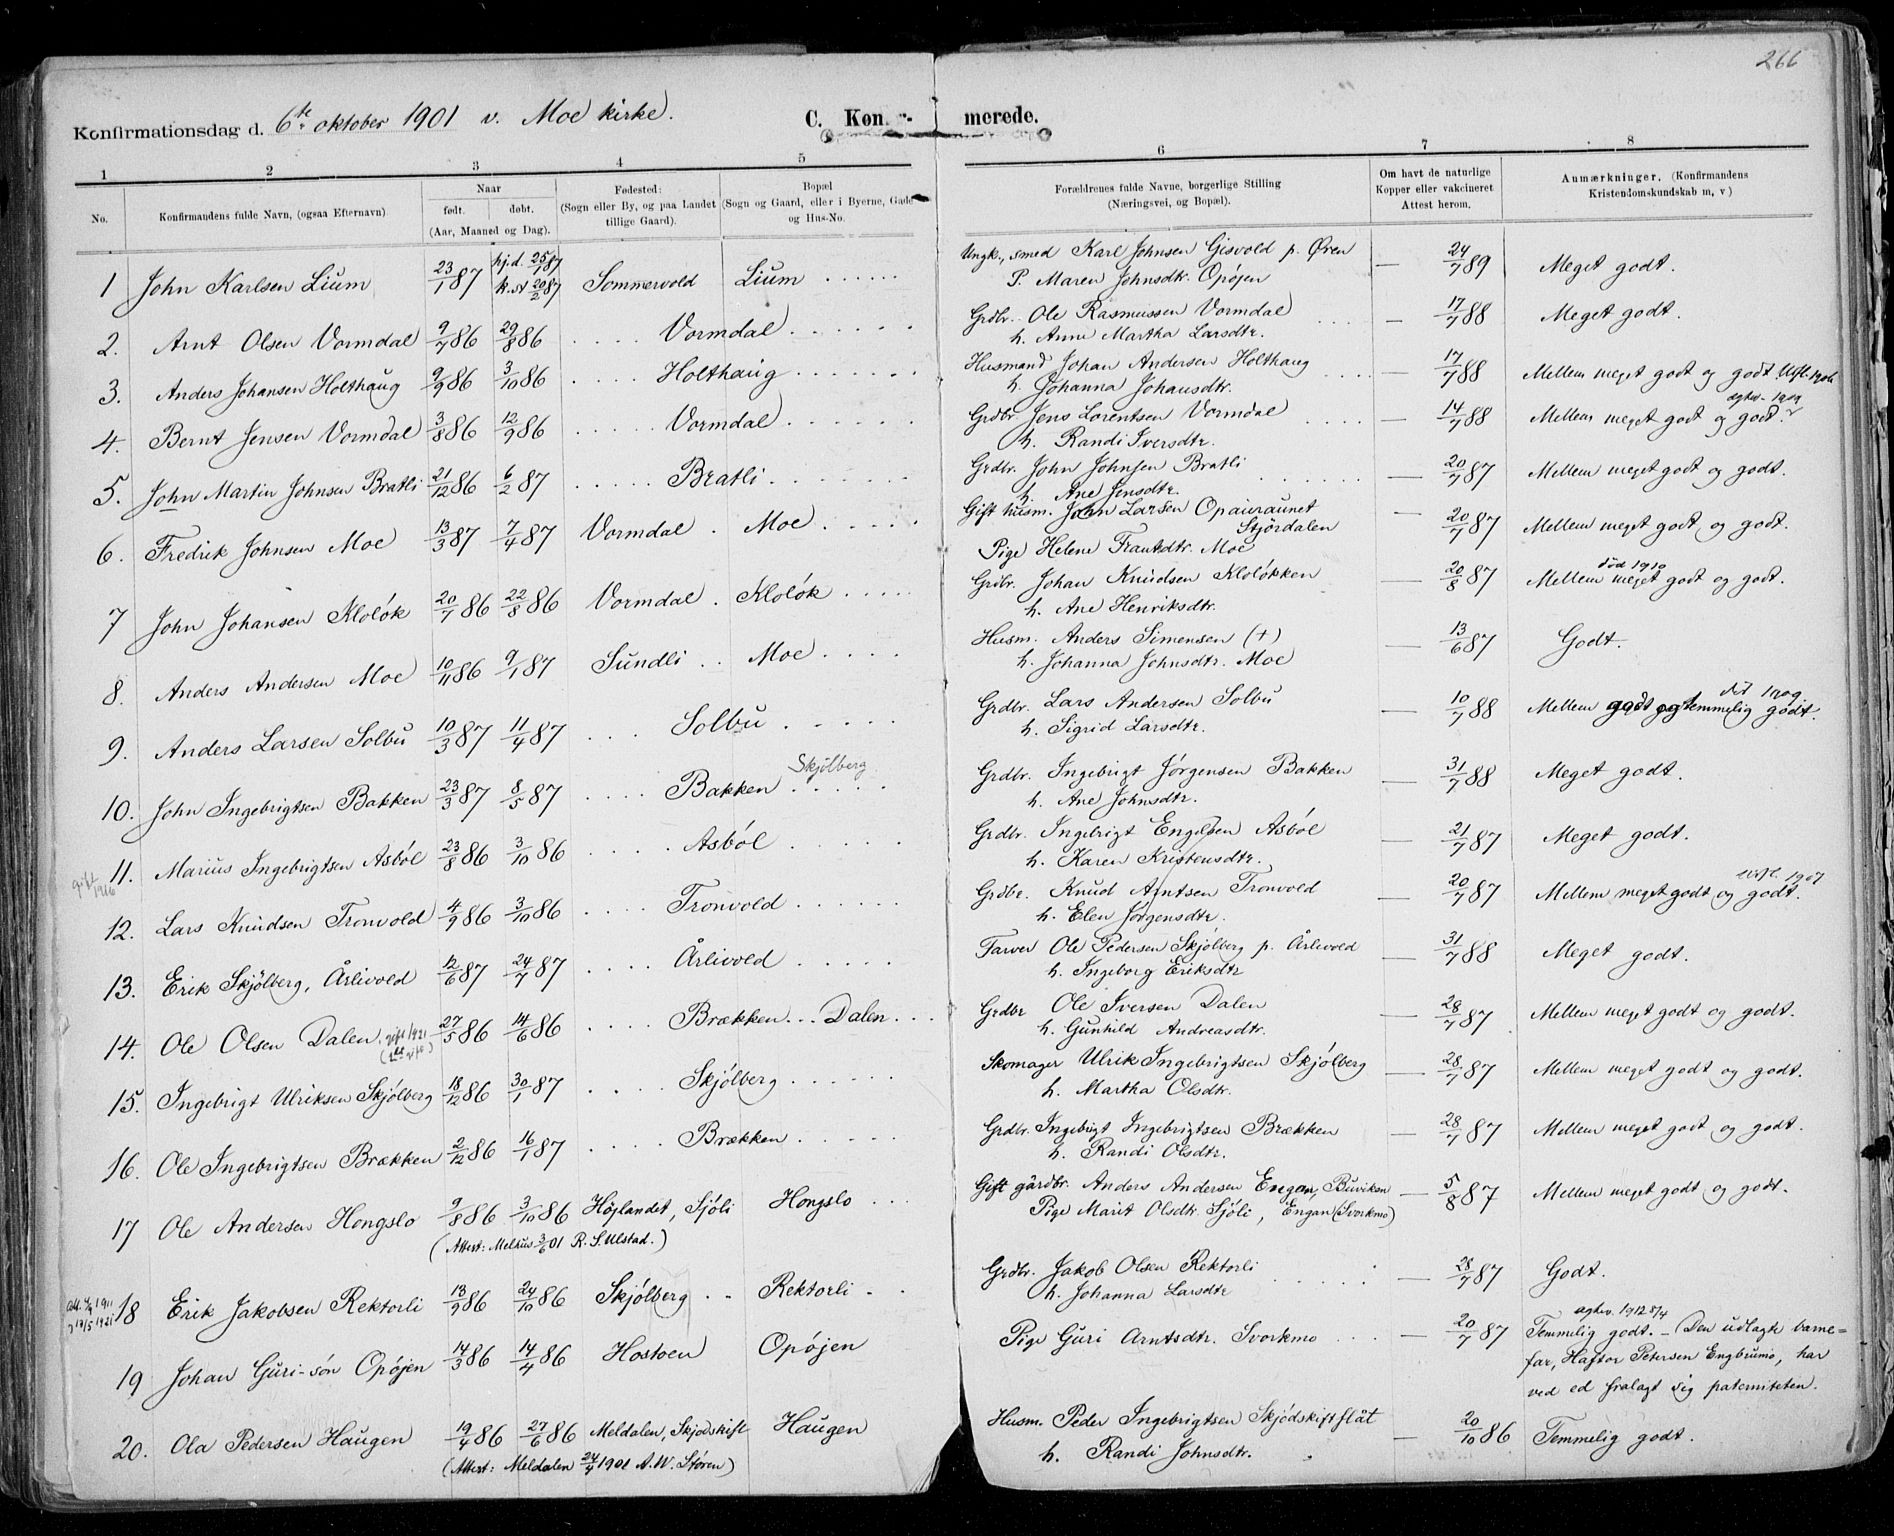 266
Konfirmationsdag d. 6te oktober 1901 v. Moe kirke. C. Kon merede.
1 2 3 4 5 6 7 8
No. Konfirmandens fulde Navn, (ogsaa Efternavn) Naar født. døbt. (Aar, Maaned og Dag). Fødested: (Sogn eller By, og paa Landet tillige Gaard). Bopæl (Sogn og Gaard, eller i Byerne, Gade og Hus-No. Forældrenes fulde Navne, borgerlige Stilling (Næringsvei, og Bopæl). Om havt de naturlige Kopper eller vakcineret Attest herom. Anmærkninger. (Konfirmandens Kristendomskundskab m, v)
1 John Karlsen Lium 23/1 87 hj.d. 25/1 87 k. st 20/2 87 Sommervold Lium Ungk., smed Karl Johnsen Gisvold p. Øren — 24/7 89 Meget godt.
P. Maren Johnsdtr. Opøjen
2. Arnt Olsen Vormdal 9/7 86 29/8 86 Vormdal Grdbr. Ole Rasmussen Vormdal — 17/7 88 Meget godt.
h. Anne Martha Larsdtr.
3. Anders Johansen Holthaug 9/9 86 3/10 86 Holthaug Husmand Johan Andersen Holthaug — 17/7 88 Mellem meget godt og godt. Utfl. 1906
h. Johanna Johansdtr.
4. Bernt Jensen Vormdal 3/8 86 12/9 86 Vormdal Grdbr. Jens Lorentsen Vormdal — 14/7 88 Mellem meget godt og godt.
h. Randi Iversdtr.
5. John Martin Johnsen Bratli 21/12 86 6/2 87 Bratli Grdbr. John Johnsen Bratli 20/7 87 Mellem meget godt og godt.
h. Ane Jensdtr.
6. Fredrik Johnsen Moe 13/3 87 7/4 87 Vormdal Moe Gift husm. John Larsen Opauraunet Stjørdalen — 20/7 87 Mellem meget godt og godt.
Pige Helene Frantsdtr. Moe
7 John Johansen Kloløk 20/7 86 22/8 86 Vormdal Kloløk Grdbr. Johan Knudsen Kloløkken — 20/8 87 Mellem meget godt og godt. død 1910
h. Ane Henriksdtr.
8. Anders Andersen Moe 10/11 86 9/1 87 Sundli Moe Husm. Anders Simensen (+) — 13/6 87 Godt.
h. Johanna Johnsdtr. Moe
9. Anders Larsen Solbu 10/3 87 11/4 87 Solbu Grdbr. Lars Andersen Solbu — 10/7 88 Mellem godt og temmelig godt.
h. Sigrid Larsdtr.
10. John Ingebrigtsen Bakken 23/3 87 8/5 87 Bakken Skjølberg Grdbr. Ingebrigt Jørgensen Bakken — 31/7 88 Meget godt.
h. Ane Johnsdtr.
11. Marius Ingebrigtsen Asbøl 23/8 86 3/10 86 Asbøl Grdbr. Ingebrigt Engelsen Asbøl — 21/7 87 Meget godt.
h. Karen Kristensdtr.
gift 1916
12. Lars Knudsen Tronvold 4/9 86 3/10 86 Tronvold Grdbr. Knud Arntsen Tronvold — 20/7 87 Mellem meget godt og godt. utfl. 1907
h. Elen Jørgensdtr.
13. Erik Skjølberg, Årlivold 12/6 87 24/7 87 Årlivold Farver Ole Pedersen Skjølberg p. Årlivold — 31/7 88 Meget godt.
h. Ingeborg Eriksdtr
14. Ole Olsen Dalen, gift 1921 27/5 86 14/6 86 Brækken Dalen Grdbr Ole Iversen Dalen — 28/7 87 Mellem meget godt og godt.
h. Gunhild Andreasdtr.
15. Ingebrigt Ulriksen Skjølberg 18/12 86 30/1 87 Skjølberg Skomager Ulrik Ingebrigtsen Skjølberg — 28/7 87 Mellem meget godt og godt.
h. Martha Olsdtr.
16. Ole Ingebrigtsen Brækken 2/12 86 16/1 87 Brækken Grdbr. Ingebrigt Ingebrigtsen Brækken — 28/7 87 Mellem meget godt og godt.
h. Randi Olsdtr.
17 Ole Andersen Hongslo 9/8 86 3/10 86 Høylandet, Sjøli Hongslo Gift gårdbr. Anders Andersen Engan, Buviken — 5/8 87 Mellem meget godt og godt.
(Attest: Melhus 3/6 01 R. S. Ulstad.) Pige Marit Olsdtr. Sjøli, Engan (Svorkmo)
18 Erik Jakobsen Rektorli 13/9 86 24/10 86 Skjølberg Rektorli Grdbr. Jakob Olsen Rektorli — 28/7 87 Godt.
h. Johanna Larsdtr
19 Johan Guri-søn Opøjen 14/3 86 14/4 86 Hostoen Opøjen Pige Guri Arntsdtr. Svorkmo — 20/7 87 Temmelig godt. – Den udlagte barne-
far, Haftor Petersen Engbrumo, har
ved ed fralagt sig paterniteten.
20. Ola Pedersen Haugen 19/4 86 27/6 86 Meldalen, Skjødskift Haugen Husm. Peder Ingebrigtsen Skjødskiftflåt — 20/10 86 Temmelig godt.
(Attest: Meldalen 24/4 1901 A. W. Støren) h. Randi Johnsdtr.